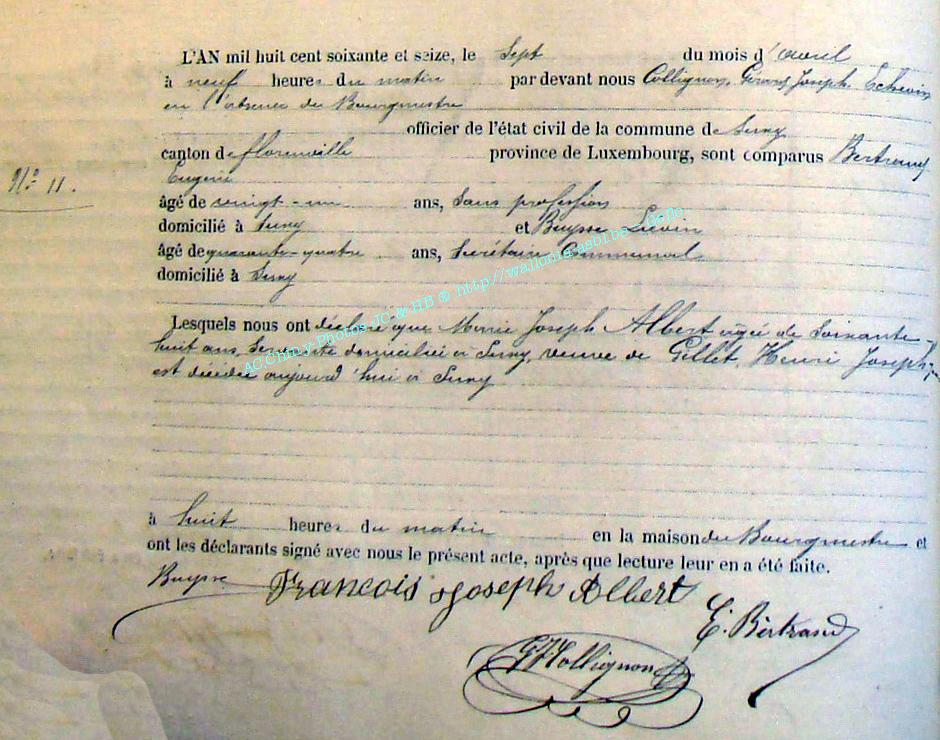 L'AN mil huit cent soixante et seize, le Sept du mois d'avril
à neuf heures du matin par devant nous Collignon, Joseph Echevin
en l'absence du Bourgmestre
officier de l'état civil de la commune de Suny
canton de florenville province de Luxembourg, sont comparus Bertrand
Nº 11.
Eugène
âgé de vingt-un ans, Sans profession
domicilié à Suny et Buysse Lievin
âgé de quarante-quatre ans, Secrétaire Communal
domicilié à Suny
ACChiny-Photos JC & HB ® http://wallonie.asbl.be
Lesquels nous ont déclaré que Marie Joseph Albert agée de Soixante
huit ans, domiciliée à Suny, veuve de Gillet, Henri Joseph,
est décédée aujourd'hui à Suny
à huit heures du matin en la maison du Bourgmestre et
ont les déclarants signé avec nous le présent acte, après que lecture leur en a été faite.
Buysse Francois Joseph Albert
E. Bertrand
GJCollignon